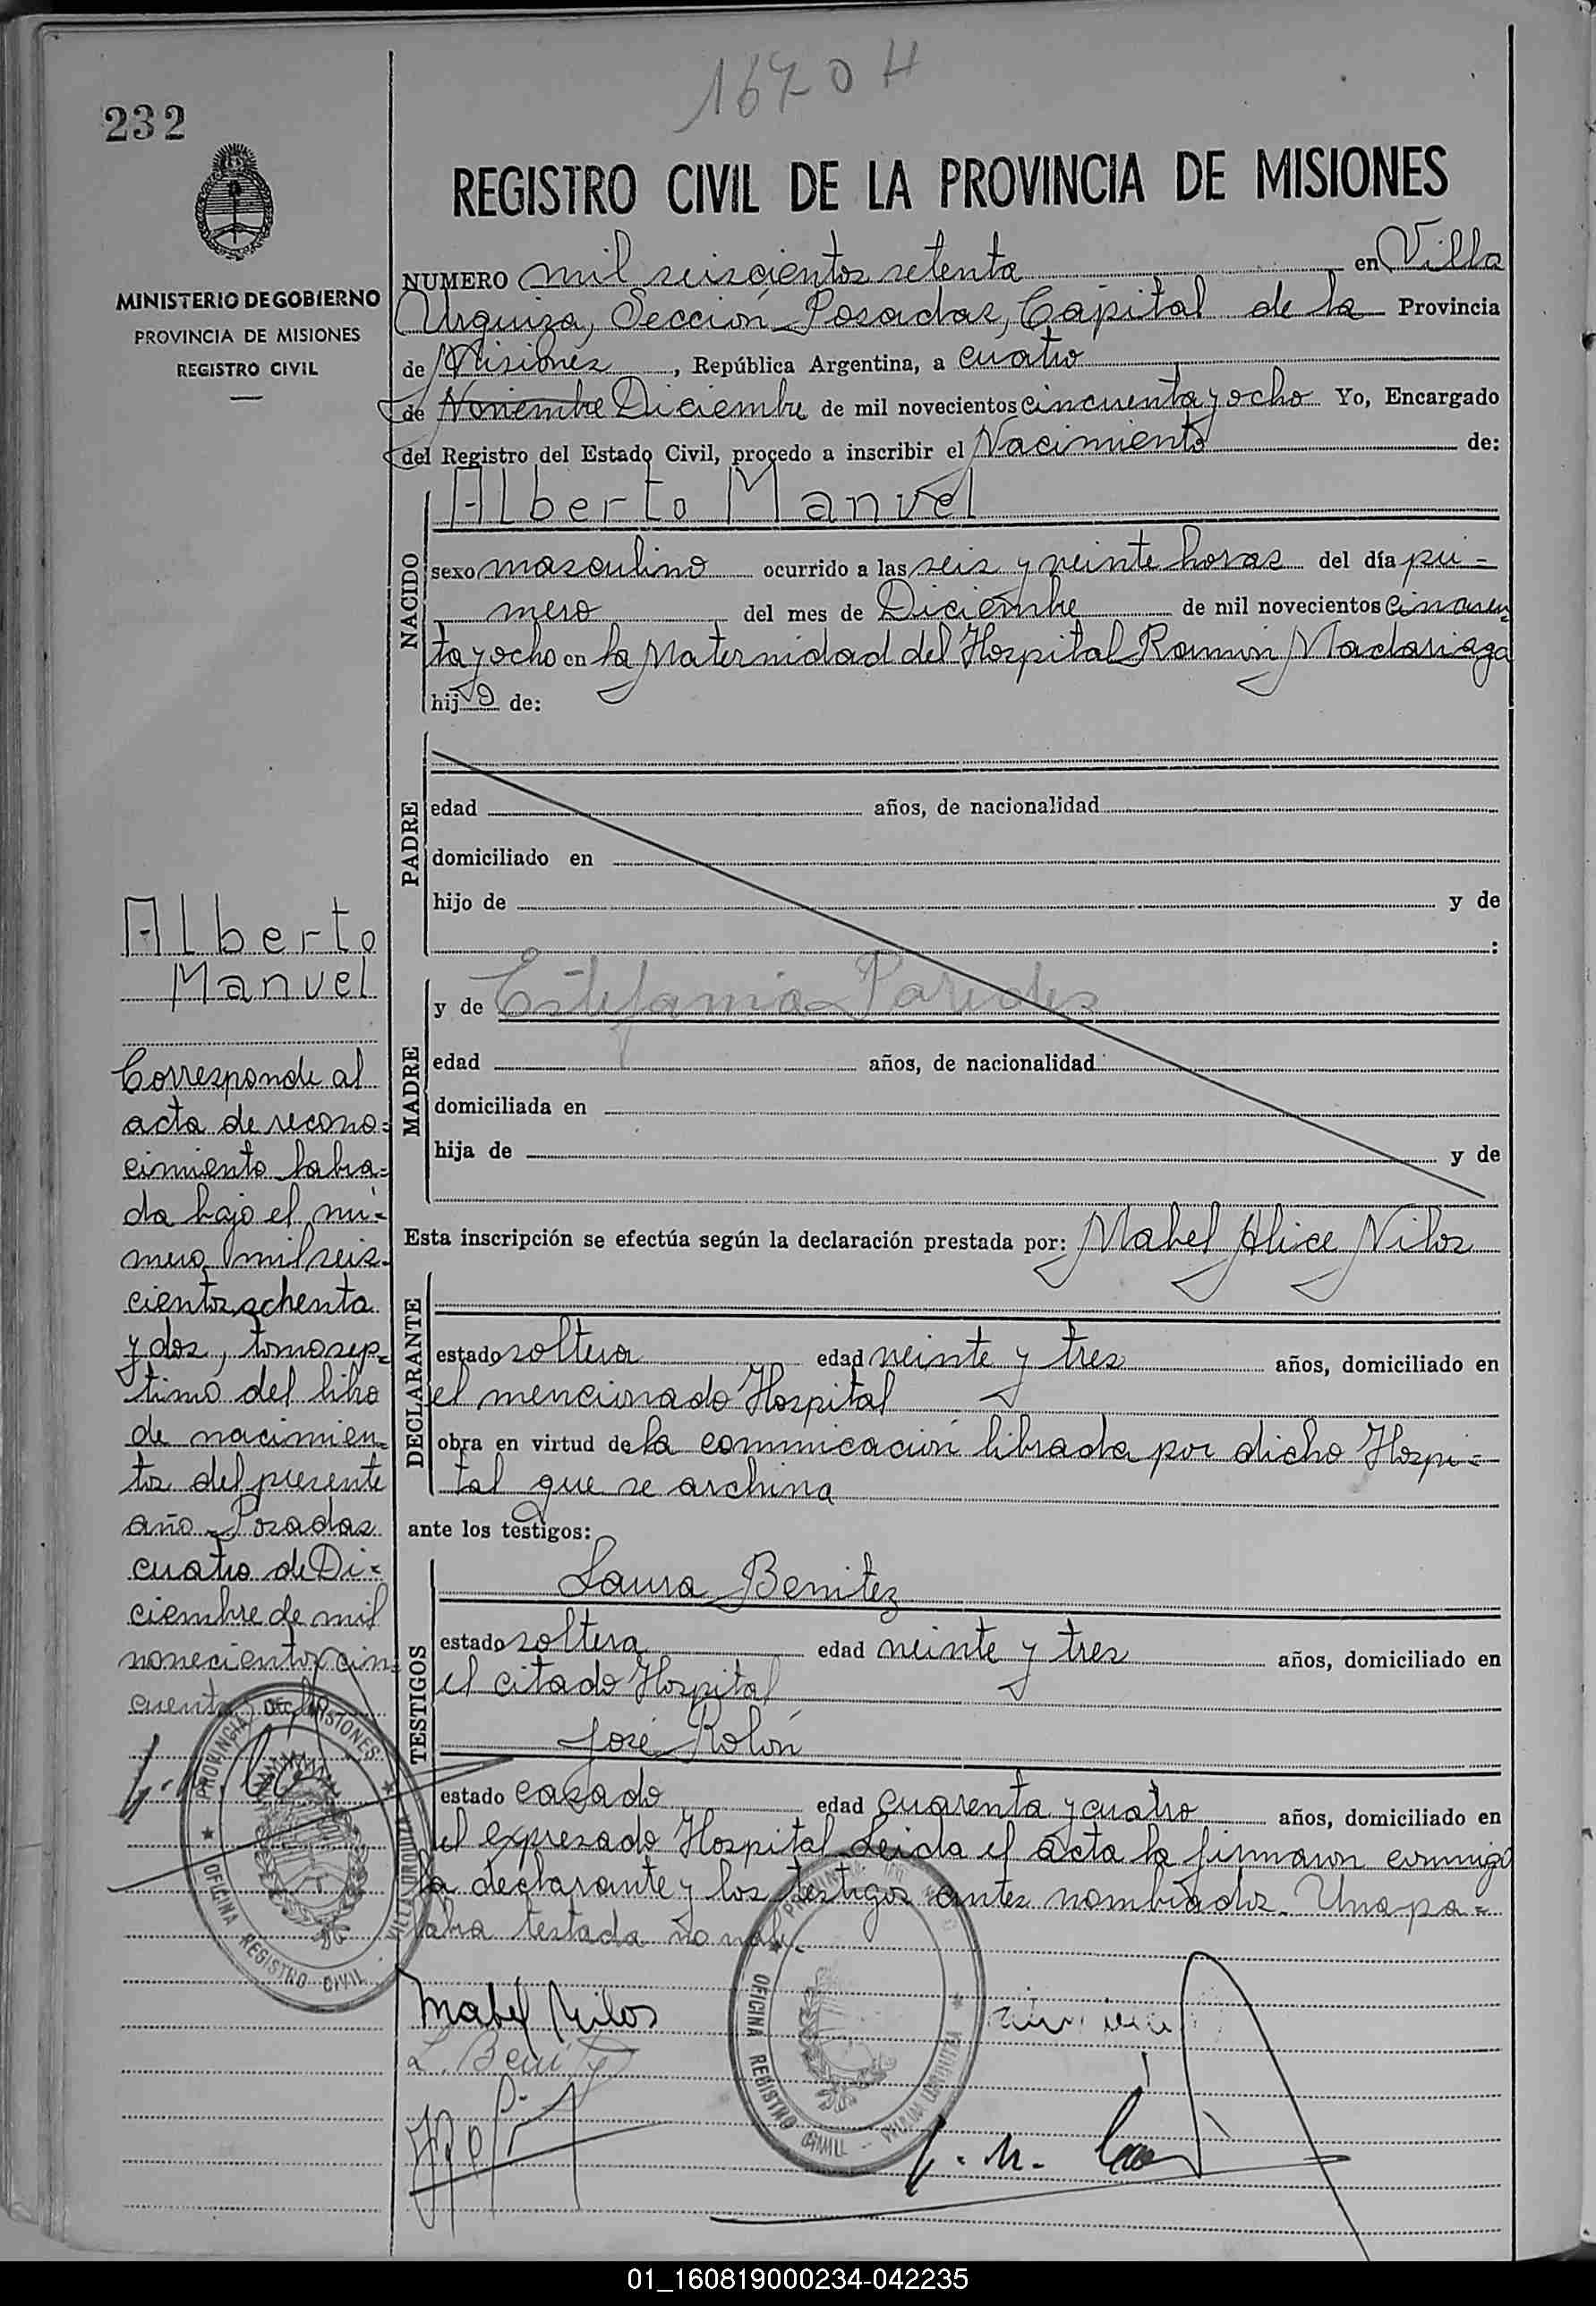 1670 H
232
REGISTRO CIVIL DE LA PROVINCIA DE MISIONES
MINISTERIO DE GOBIERNO
PROVINCIA DE MISIONES
REGISTRO CIVIL
NUMERO mil seiscientos setenta en Villa
Urquiza, Sección Posadas, Capital de la Provincia
de Misiones, República Argentina, a cuatro
de Noviembre Diciembre de mil novecientos cincuenta y ocho Yo, Encargado
del Registro del Estado Civil, procedo a inscribir el Nacimiento de:
NACIDO
Alberto Manuel
sexo masculino ocurrido a las seis y veinte horas del día pri=
mero del mes de Diciembre de mil novecientos cincuen
ta y ocho en la Maternidad del Hospital Ramón Madariaga
hijo de:
PADRE
edad años, de nacionalidad
domiciliado en
hijo de y de
:
MADRE
y de Estefania Paredes
edad años, de nacionalidad
domiciliada en
hija de y de
Esta inscripción se efectúa según la declaración prestada por: Mabel Alice Nilos
DECLARANTE
estado soltera edad veinte y tres años, domiciliado en
el mencionado Hospital
obra en virtud de la comunicación librada por dicho Hospi=
tal que se archiva
ante los testigos:
TESTIGOS
Laura Benitez
estado soltera edad veinte y tres años, domiciliado en
el citado Hospital
José Rolón
estado casado edad cuarenta y cuatro años, domiciliado en
el expresado Hospital Leida el acta la firmaron conmigo
la declarante y los testigos antes nombrados. Una pa=
labra testada no vale.
Mabel Nilos
L. Benitez
OFICINA REGISTRO CIVIL
Alberto
Manuel
Corresponde al
acta de recono=
cimiento labra=
da bajo el nú=
mero mil seis=
cientos ochenta
y dos, tomo sép=
timo del libro
de nacimien=
tos del presente
año - Posadas
cuatro de Di=
ciembre de mil
novecientos cin
cuenta
PROVINCIA DE MISIONES
OFICINA REGISTRO CIVIL - VILLA URQUIZA
01_160819000234-042235